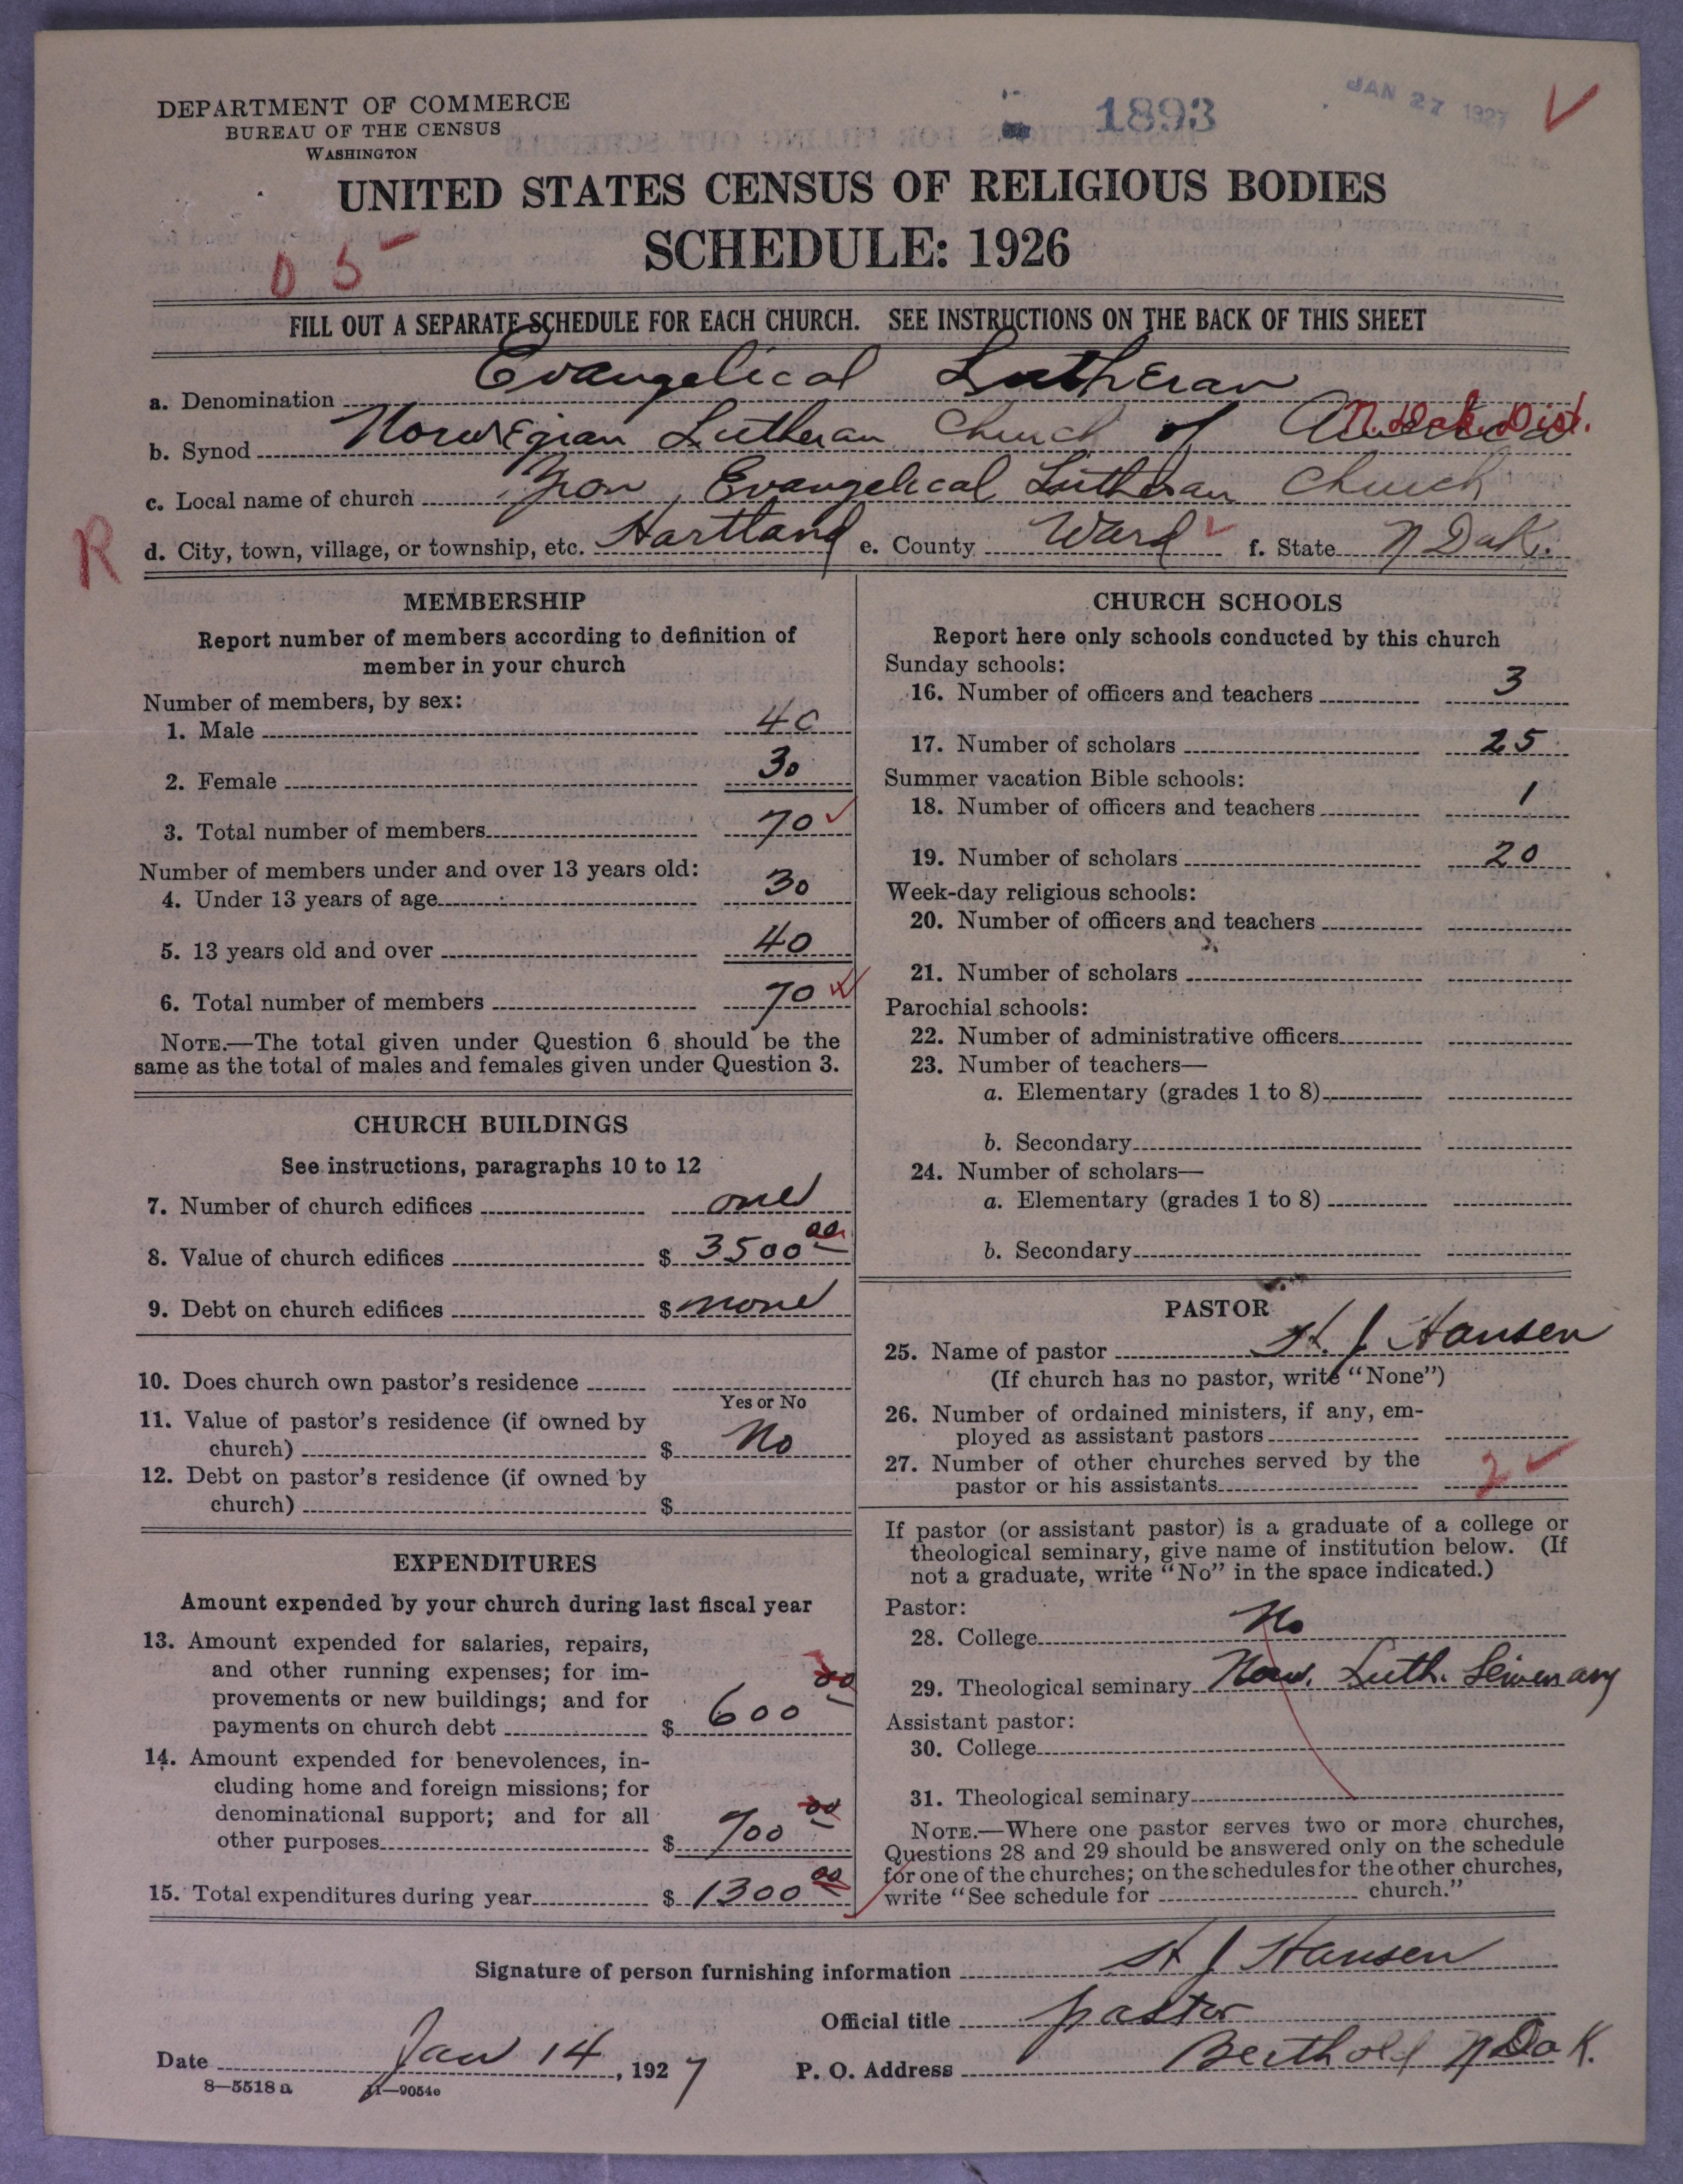 DEPARTMENT OF COMMERCE
BUREAU OF THE CENSUS
WASHINGTON
1893
JAN 27 1927
UNITED STATES CENSUS OF RELIGIOUS BODIES
SCHEDULE: 1926
0 5
FILL OUT A SEPARATE SCHEDULE FOR EACH CHURCH. SEE INSTRUCTIONS ON THE BACK OF THIS SHEET
a. Denomination Evangelical Lutheran
b. Synod Norwegian Lutheran Church of America N. Dak. Dist.
c. Local name of church Zion Evangelical Lutheran Church
R
d. City, town, village, or township, etc. Hartland e. County Ward f. State N Dak.
MEMBERSHIP
Report number of members according to definition of
member in your church
Number of members, by sex:
1. Male 40
2. Female 30
3. Total number of members 70
Number of members under and over 13 years old:
4. Under 13 years of age 30
5. 13 years old and over 40
6. Total number of members 70
NOTE.—The total given under Question 6 should be the
same as the total of males and females given under Question 3.
CHURCH BUILDINGS
See instructions, paragraphs 10 to 12
7. Number of church edifices one
8. Value of church edifices $ 3500 00
9. Debt on church edifices $ none
10. Does church own pastor's residence
Yes or No
11. Value of pastor's residence (if owned by
church) $ No
12. Debt on pastor's residence (if owned by
church) $
EXPENDITURES
Amount expended by your church during last fiscal year
13. Amount expended for salaries, repairs,
and other running expenses; for im-
provements or new buildings; and for
payments on church debt $ 600 00
14. Amount expended for benevolences, in-
cluding home and foreign missions; for
denominational support; and for all
other purposes $ 700 00
15. Total expenditures during year $ 1300 00
CHURCH SCHOOLS
Report here only schools conducted by this church
Sunday schools:
16. Number of officers and teachers 3
17. Number of scholars 25
Summer vacation Bible schools:
18. Number of officers and teachers 1
19. Number of scholars 20
Week-day religious schools:
20. Number of officers and teachers
21. Number of scholars
Parochial schools:
22. Number of administrative officers
23. Number of teachers—
a. Elementary (grades 1 to 8)
b. Secondary
24. Number of scholars—
a. Elementary (grades 1 to 8)
b. Secondary
PASTOR
25. Name of pastor H. J Hansen
(If church has no pastor, write "None")
26. Number of ordained ministers, if any, em-
ployed as assistant pastors
27. Number of other churches served by the
pastor or his assistants 2
If pastor (or assistant pastor) is a graduate of a college or
theological seminary, give name of institution below. (If
not a graduate, write "No" in the space indicated.)
Pastor:
28. College No
29. Theological seminary Norw. Luth. Seminary
Assistant pastor:
30. College
31. Theological seminary
NOTE.—Where one pastor serves two or more churches,
Questions 28 and 29 should be answered only on the schedule
for one of the churches; on the schedules for the other churches,
write "See schedule for church."
Signature of person furnishing information H J Hansen
Official title pastor
Date Jan 14, 1927 P. O. Address Berthold N Dak.
8—5518 a 11—9054c